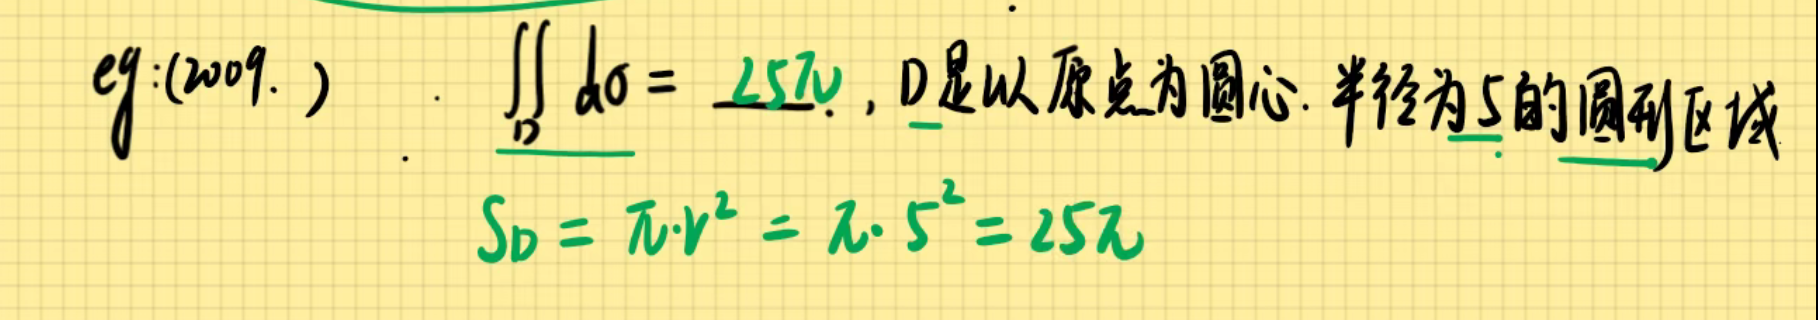 eg:(2009. ) ∬_D dσ = 25π. , D是以原点为圆心.半径为5的圆形区域
S_D = π·r² = π·5² = 25π